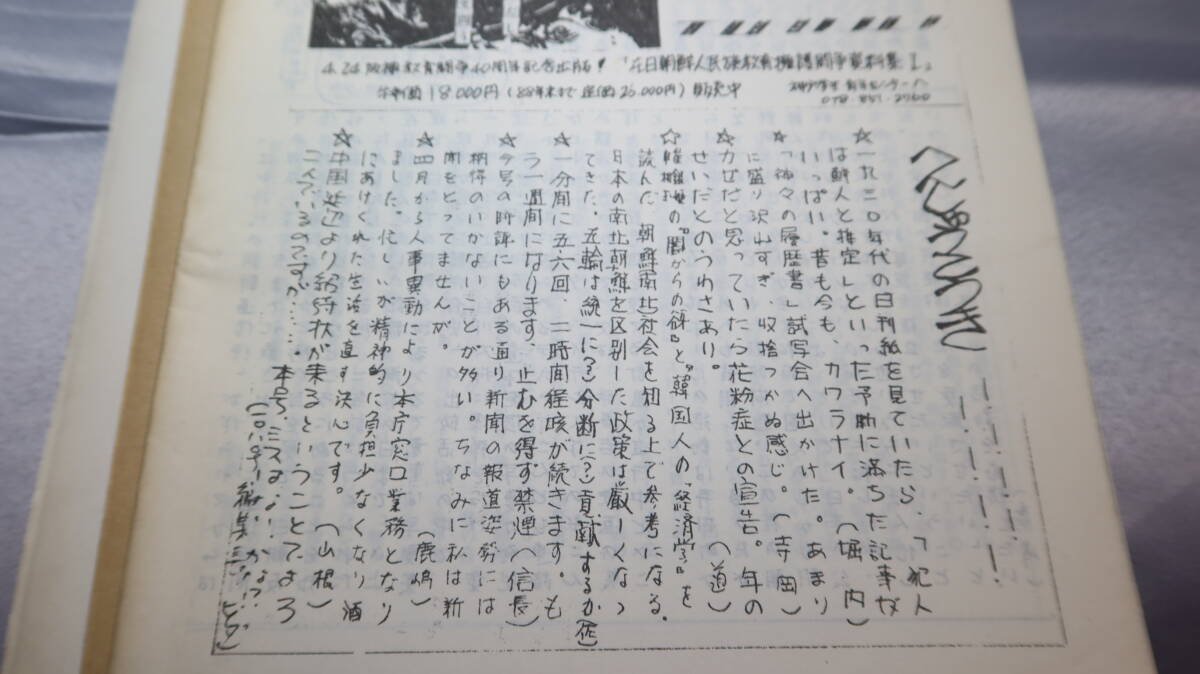 4.24阪神教育闘争40周年記念出版!「在日朝鮮人民族教育擁護闘争資料集 I」
18,000円(88年末まで 定価20,000円)販売中
078-851-2760
へんしゅうあとがき
☆一九二〇年代の日刊紙を見ていたら、「犯人
は朝人と推定」といった予断に満ちた記事が
いっぱい。昔も今も、カワラナイ。(堀内)
☆「神々の履歴書」試写会へ出かけた。あまり
に盛り沢山すぎ、収捨つかぬ感じ。(寺岡)
☆カゼだと思っていたら花粉症との宣告。年の
せいだとのうわさあり。(道)
☆『闇からの谺』と『韓国人の「経済学」』を
読んだ。朝鮮南北社会を知る上で参考になる。
日本の南北朝鮮を区別した政策は厳しくなっ
てきた。五輪は統一に(?)分断に(?)貢献するか(佐)
☆一分間に五六回、二時間経咳が続きます。も
う一週間になります。止むを得ず禁煙へ(信長)
☆今号の時評にもある通り新聞の報道姿勢には
納得のいかないことが多い。ちなみに私は新
聞をとってませんが。(鹿嶋)
☆四月から人事異動により本庁窓口業務となり
ました。忙しいが精神的に負担少なくなり酒
にあけくれた生活を直す決心です。(山根)
☆中国 より招待状が来るということでよろ
こんでいるのですが……。本号、